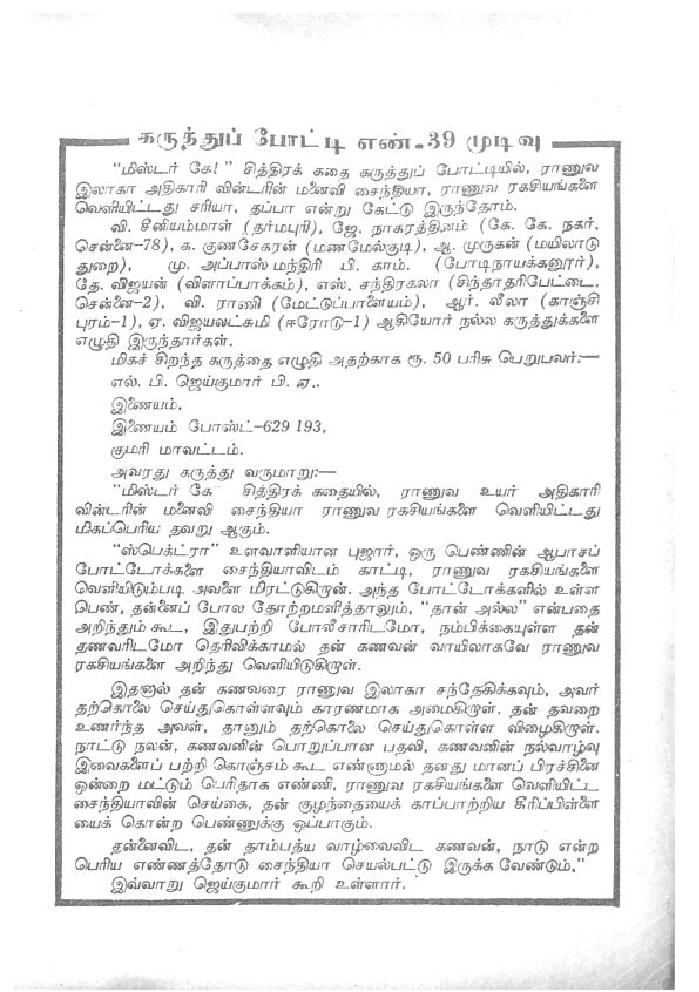 கருத்துப் போட்டி எண்-39 முடிவு
"மிஸ்டர் கே!" சித்திரக் கதை கருத்துப் போட்டியில், ராணுவ
இலாகா அதிகாரி வின்டரின் மனைவி சைந்தியா, ராணுவ ரகசியங்களை
வெளியிட்டது சரியா, தப்பா என்று கேட்டு இருந்தோம்.
வி. சீனியம்மாள் (தர்மபுரி), ஜே. நாகரத்தினம் (கே. கே. நகர்,
சென்னை-78), க. குணசேகரன் (மணமேல்குடி), ஆ. முருகன் (மயிலாடு
துறை), மு. அப்பாஸ் மந்திரி பி. காம். (போடிநாயக்கனூர்),
தே. விஜயன் (விளாப்பாக்கம்), எஸ். சந்திரகலா (சிந்தாதரிபேட்டை,
சென்னை-2), வி. ராணி (மேட்டுப்பாளையம்), ஆர். லீலா (காஞ்சி
புரம்-1), ஏ. விஜயலட்சுமி (ஈரோடு-1) ஆகியோர் நல்ல கருத்துக்களை
எழுதி இருந்தார்கள்.
மிகச் சிறந்த கருத்தை எழுதி அதற்காக ரூ. 50 பரிசு பெறுபவர்:—
எல். பி. ஜெய்குமார் பி. ஏ.,
இணையம்,
இணையம் போஸ்ட்-629 193,
குமரி மாவட்டம்.
அவரது கருத்து வருமாறு:—
"மிஸ்டர் கே" சித்திரக் கதையில், ராணுவ உயர் அதிகாரி
வின்டரின் மனைவி சைந்தியா ராணுவ ரகசியங்களை வெளியிட்டது
மிகப்பெரிய தவறு ஆகும்.
"ஸ்பெக்ட்ரா" உளவாளியான புஜார், ஒரு பெண்ணின் ஆபாசப்
போட்டோக்களை சைந்தியாவிடம் காட்டி, ராணுவ ரகசியங்களை
வெளியிடும்படி அவளை மிரட்டுகிறான். அந்த போட்டோக்களில் உள்ள
பெண், தன்னைப் போல தோற்றமளித்தாலும், "தான் அல்ல" என்பதை
அறிந்தும் கூட, இதுபற்றி போலீசாரிடமோ, நம்பிக்கையுள்ள தன்
கணவரிடமோ தெரிவிக்காமல் தன் கணவன் வாயிலாகவே ராணுவ
ரகசியங்களை அறிந்து வெளியிடுகிறாள்.
இதனால் தன் கணவரை ராணுவ இலாகா சந்தேகிக்கவும், அவர்
தற்கொலை செய்துகொள்ளவும் காரணமாக அமைகிறாள். தன் தவறை
உணர்ந்த அவள், தானும் தற்கொலை செய்துகொள்ள விழைகிறாள்.
நாட்டு நலன், கணவனின் பொறுப்பான பதவி, கணவனின் நல்வாழ்வு
இவைகளைப் பற்றி கொஞ்சம் கூட எண்ணாமல் தனது மானப் பிரச்சினை
ஒன்றை மட்டும் பெரிதாக எண்ணி, ராணுவ ரகசியங்களை வெளியிட்ட
சைந்தியாவின் செய்கை, தன் குழந்தையைக் காப்பாற்றிய கீரிப்பிள்ளை
யைக் கொன்ற பெண்ணுக்கு ஒப்பாகும்.
தன்னைவிட, தன் தாம்பத்ய வாழ்வைவிட கணவன், நாடு என்ற
பெரிய எண்ணத்தோடு சைந்தியா செயல்பட்டு இருக்க வேண்டும்."
இவ்வாறு ஜெய்குமார் கூறி உள்ளார்.